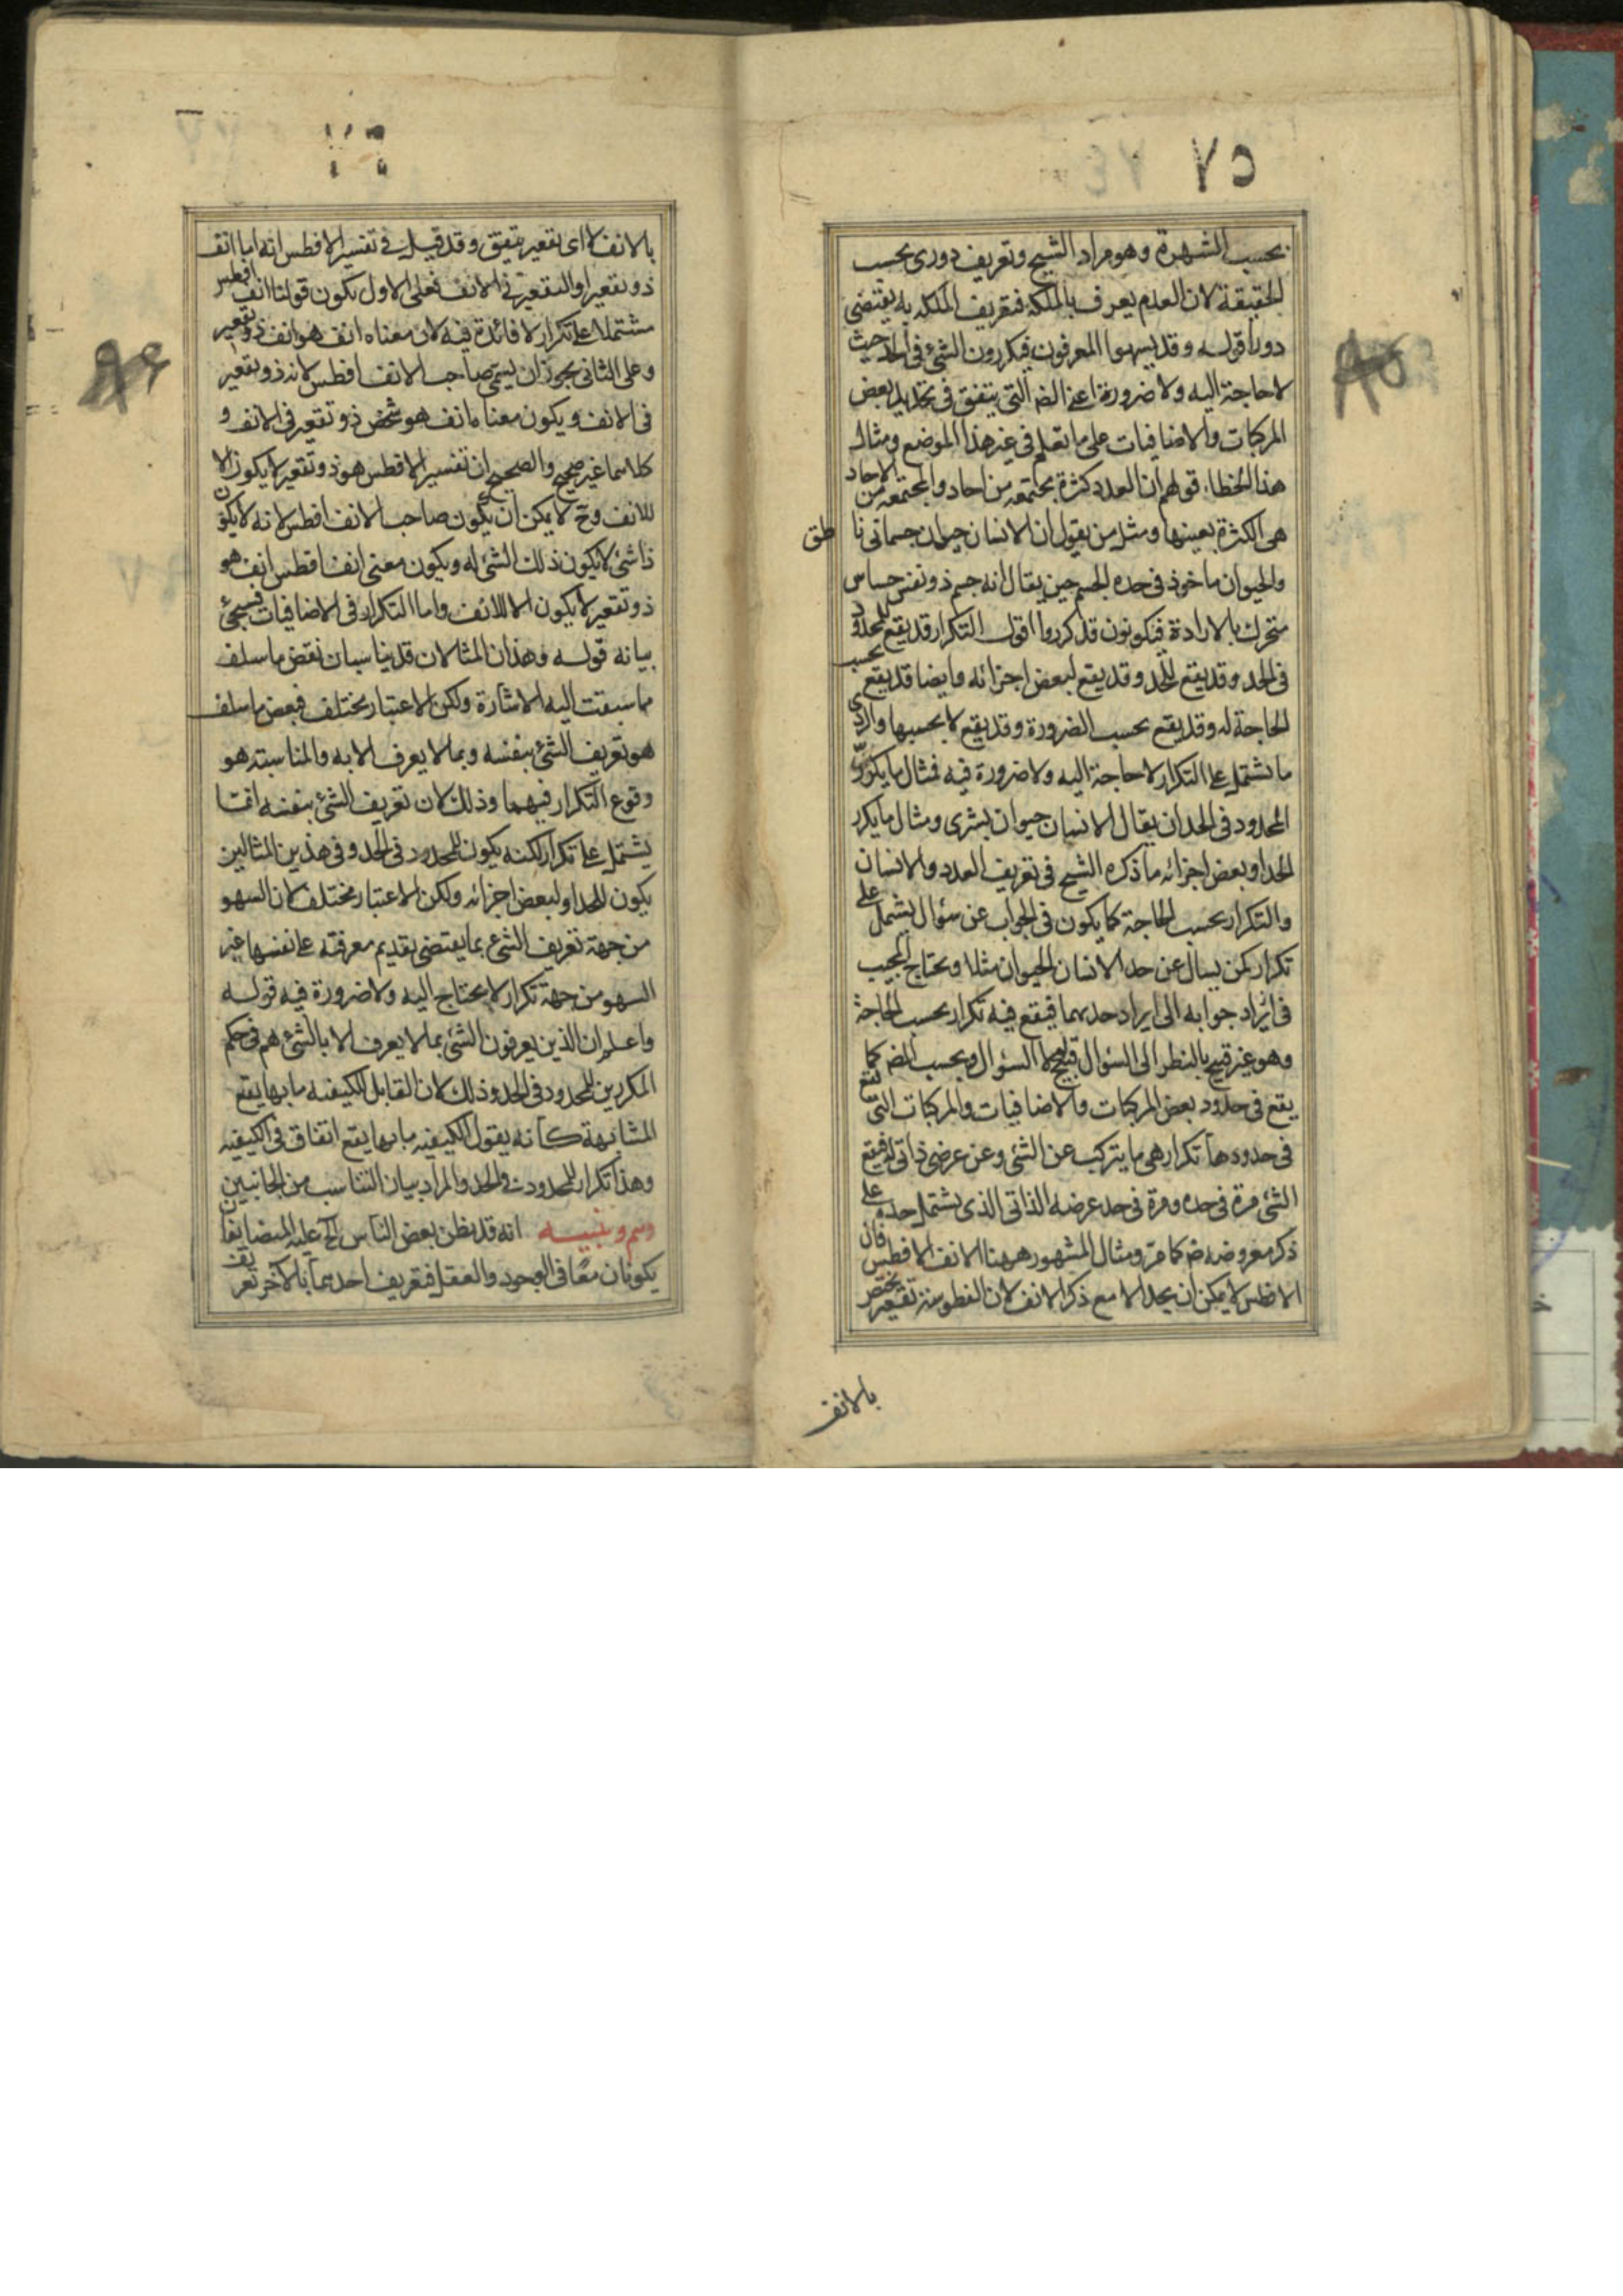 ٧٥
بحسب الشهرة وهو مراد الشيخ وتعريف دورى بحسب
الحقيقة لان العدم يعرف بالملكة فتعريف الملكه به يقتضى
دورا قوله وقد يسهوا المعرفون فيكررون الشئ فى الحد حيث
لا حاجة اليه ولا ضرورة اعنى الضـ التى يتفق فى تحديد بعض
المركبات والاضافيات على ما تعلم فى غير هذا الموضع ومثال
هذا الخطا قولهم ان العدد كثرة مجتمعه من احاد والمجتمعه من الاحاد
هى الكثرة بعينها ومثل من يقول ان الانسان حيوان جسمانى ناطق
والحيوان ماخوذ فى حده الجسم حين يقال انه جسم ذو نفس حساس
متحرك بالارادة فيكونون قد كرروا اقول التكرار قد يقع للمحدود
فى الحد وقد يقع للحد وقد يقع لبعض اجزائه وايضا قد يقع بحسب
الحاجة له وقد يقع بحسب الضرورة وقد يقع لا بحسبها والردى
ما يشتمل على التكرار لا حاجة اليه ولا ضرورة فيه فمثال ما يكرر
المحدود فى الحد ان يقال الانسان حيوان بشرى ومثال ما يكرر
الحد او بعض اجزائه ما ذكره الشيخ فى تعريف العدد والانسان
والتكرار بحسب الحاجة كما يكون فى الجواب عن سؤال يشمل على
تكرار كمن يسال عن حد الانسان الحيوان مثلا ويحتاج المجيب
فى ايراد جوابه الى ايراد حديهما فيقع فيه تكرار بحسب الحاجة
وهو غير قبيح بالنظر الى السؤال قبيح لا السؤال وبحسب الضـ كما
يقع فى حدود بعض المركبات والاضافيات والمركبات التى تقع
فى حدودها تكرار هى ما يتركب عن الشئ وعن عرضى ذاتى له فيقع
الشئ مرة فى حده ومرة فى حد عرضه الذاتى الذى يشتمل حده على
ذكر معروضه ضـ كما مر ومثال المشهور ههنا الانف الافطس فان
الافطس لا يمكن ان يحد الا مع ذكر الانف لان الفطوسة تقعير يختص
بالانف
بالانف لا اى تقعير يتفق وقد قيل فى تفسير الافطس انه اما انف
ذو تقعير او التقعير فى الانف فعلى الاول يكون قولنا انف افطس
مشتملا على تكرار لا فائدة فيه لان معناه انف هو انف ذو تقعير
وعلى الثانى يجوز ان يسمى صاحب الانف افطس لانه ذو تقعير
فى الانف ويكون معناه انف هو شخص ذو تقعير فى الانف و
كلاهما غير صحيح والصحيح ان تفسير الافطس هو ذو تقعير لا يكون الا
للانف وح لا يمكن ان يكون صاحب الانف افطس لانه لا يكون
ذا شئ لا يكون ذلك الشئ له ويكون معنى انف افطس انف هو
ذو تقعير لا يكون الا للانف واما التكرار فى الاضافيات فسيجئ
بيانه قوله وهذان المثالان قد يناسبان نقض ما سلف
مما سبقت اليه الاشارة ولكن الاعتبار مختلف فبعض ما سلف
هو تعريف الشئ بنفسه وبما لا يعرف الا به والمناسبة هو
وقوع التكرار فيهما وذلك لان تعريف الشئ بنفسه ايضا
يشتمل على تكرار لكنه يكون للمحدود فى الحد وفى هذين المثالين
يكون للحد او لبعض اجزائه ولكن الاعتبار مختلف لان السهو
من جهة تعريف الشئ بما يقتضى تقديم معرفته على نفسها غير
السهو من جهة تكرار لا يحتاج اليه ولا ضرورة فيه قوله
واعلم ان الذين يعرفون الشئ بما لا يعرف الا بالشئ هم فى حكم
المكررين للمحدود فى الحد وذلك لان القابل الكيفيه ما بها يقع
المشابهة كانه يقول الكيفيه ما بها يقع اتفاق فى الكيفيه
وهذا تكرار للمحدود فى الحد والمراد بيان التناسب من الجانبين
وهم وتنبيه انه قد يظن بعض الناس انه المتضايفان
يكونان معا فى الوجود والعقل فيعريف احدهما بالآخر تعريف